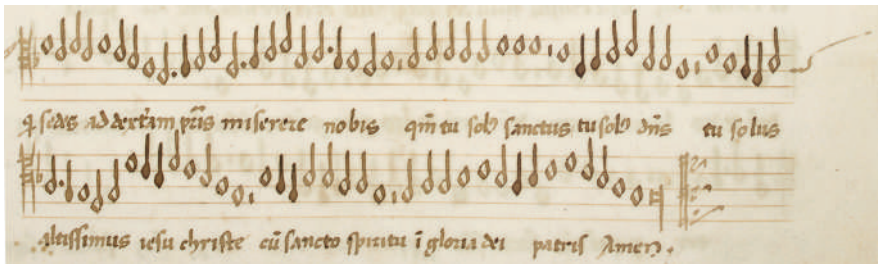 q sedes ad dextram pris miserere nobis qm tu solus sanctus tu solus dns tu solus
altissimus iesu christe cu sancto spiritu i gloria dei patris Amen.